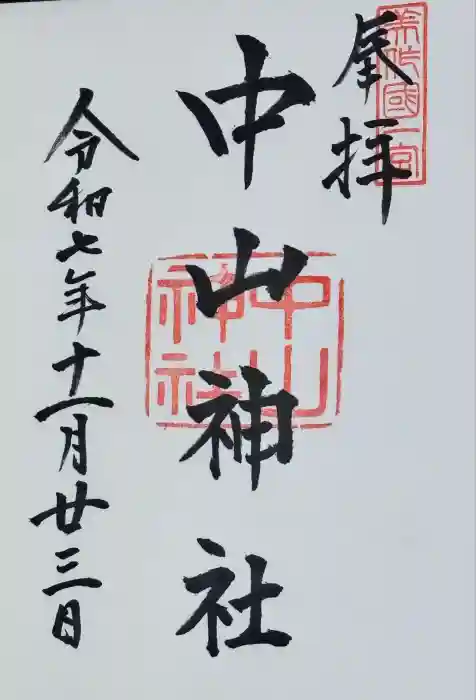 奉拝
美作國一宮
中山神社
中山
神社
令和七年十一月廿三日